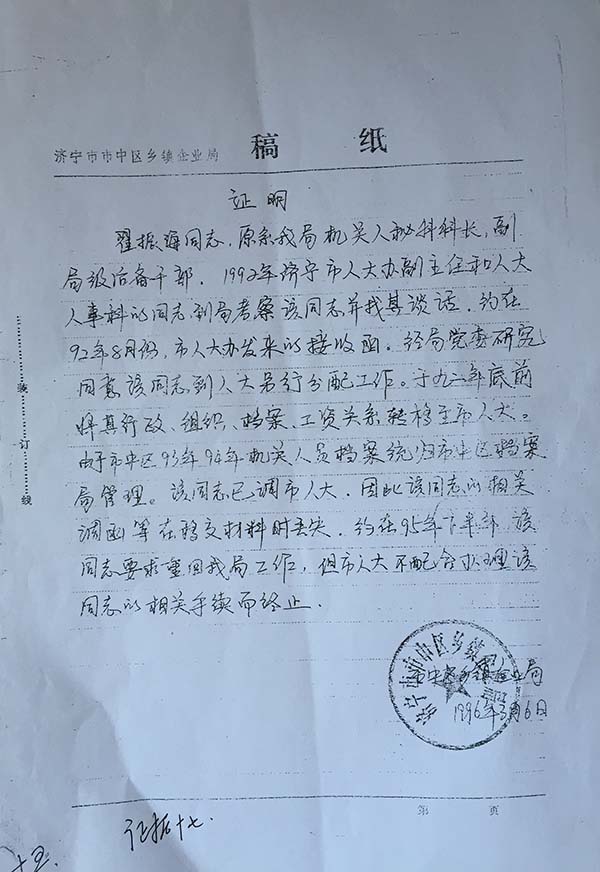 济宁市市中区乡镇企业局 稿 纸
证明
翟振海同志,原系我局机关人秘科科长,副
局级后备干部,1992年济宁市人大办副主任和人大
人事科的同志到局考察该同志并找其谈话,约在
92年8月份,市人大办发来的接收函,经局党委研究
同意该同志到人大另行分配工作。于九二年底前
将其行政、组织、档案、工资关系转移至市人大。
由于市中区93年94年机关人员档案统归市中区档案
局管理。该同志已调市人大,因此该同志的相关
调函等在移交材料时丢失,约在95年下半年,该
同志要求重回我局工作,但市人大不配合办理该
同志的相关手续而终止.
济宁市市中区乡镇企业局
中区乡镇企业局
1996年3月6日
装
订
线
第 页
证据十七.
十五.